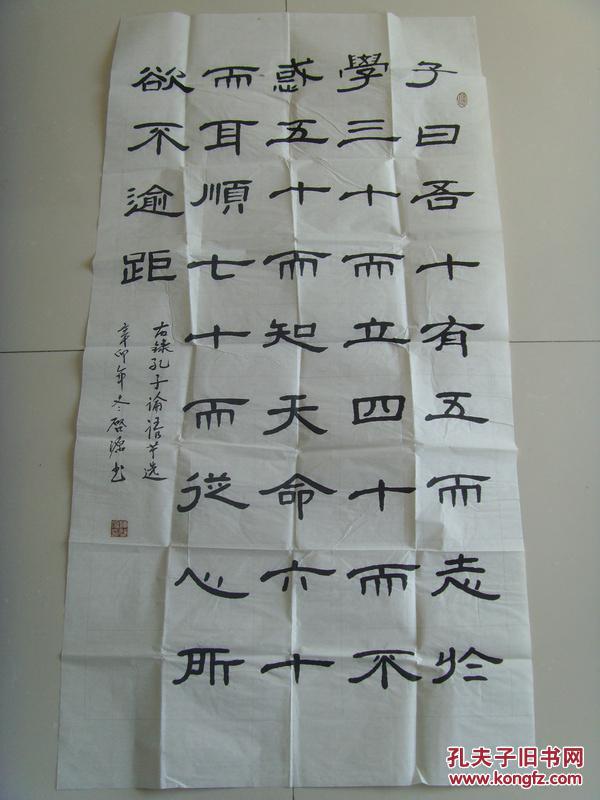 子曰吾十有五而志於
學三十而立四十而不
惑五十而知天命六十
而耳順七十而從心所
欲不逾距
右錄孔子論語节选
辛卯年冬啓源书
孔夫子旧书网
www.kongfz.com